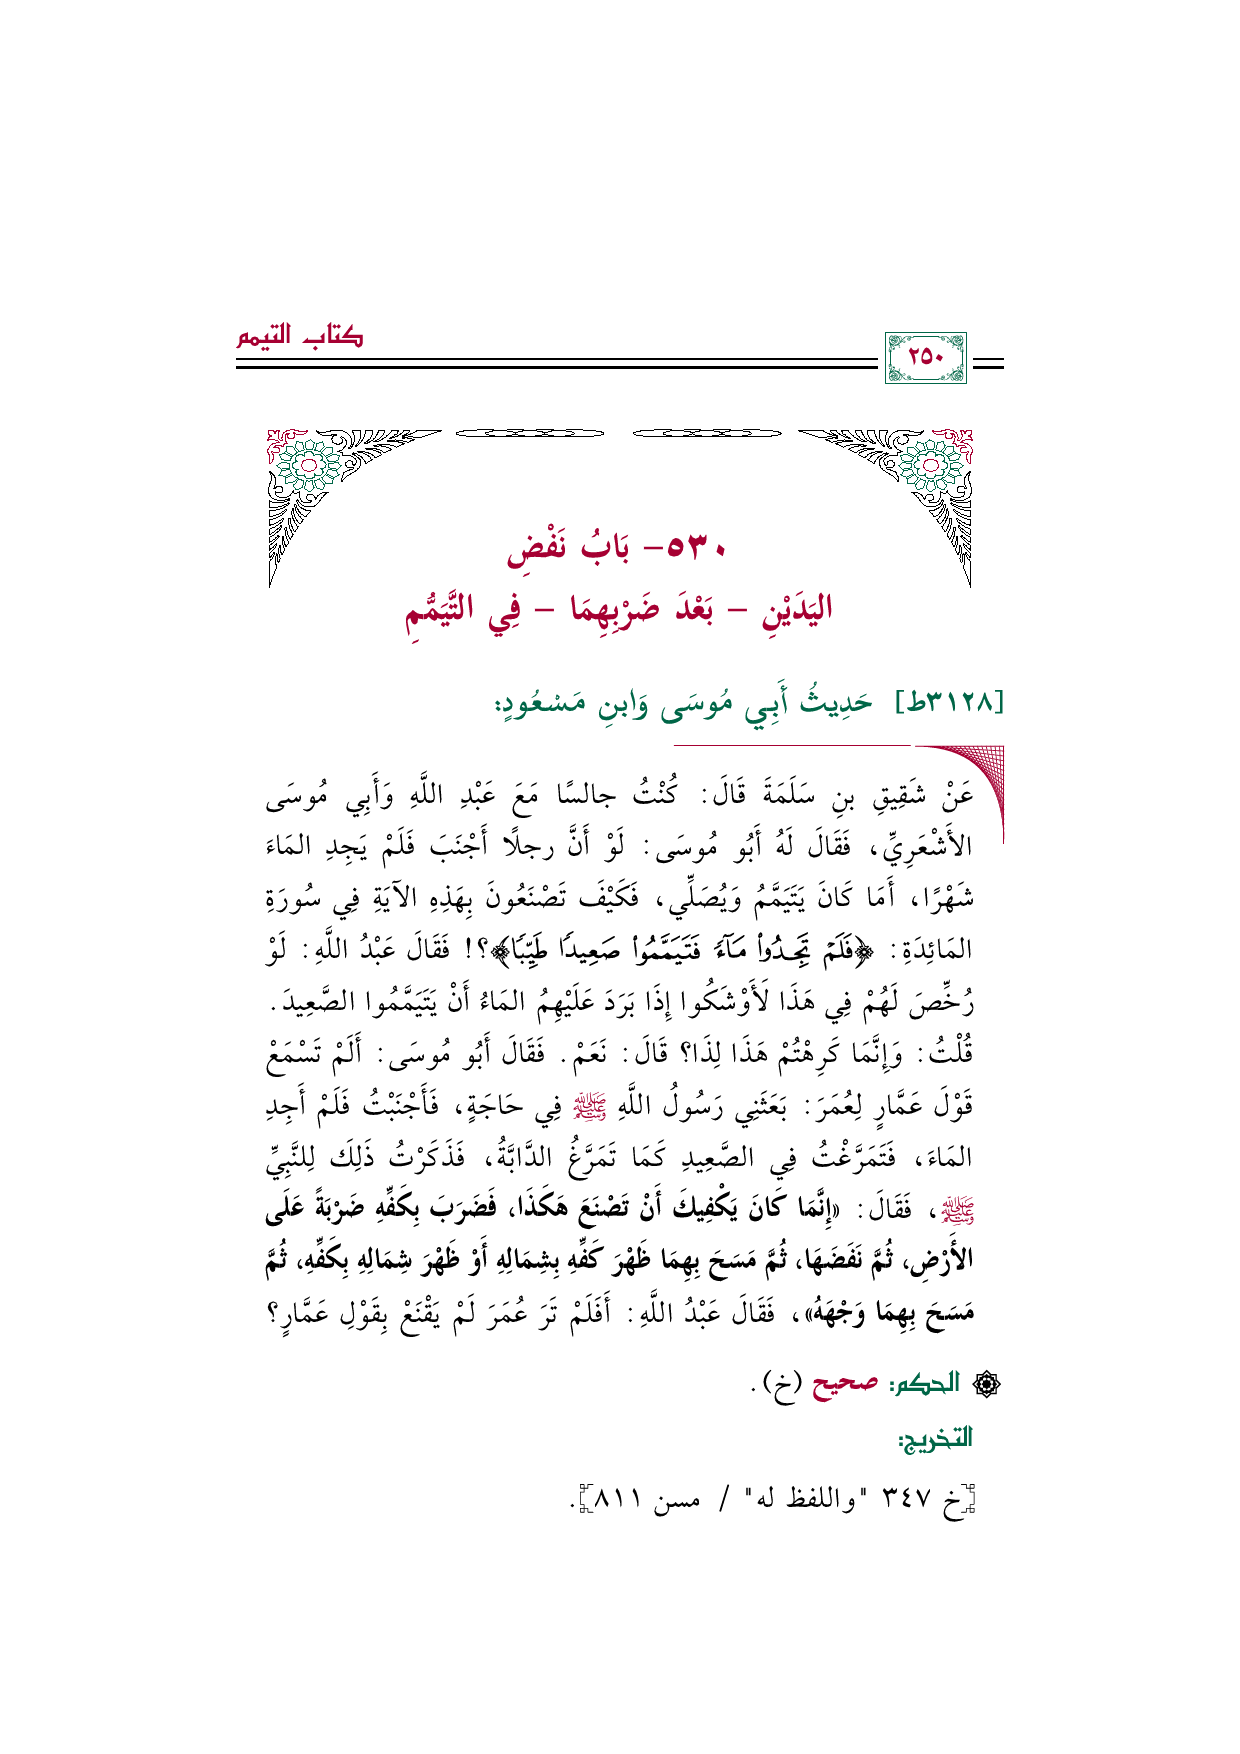 كتاب التيمم
٢٥٠
٥٣٠- بَابُ نَفْضِ
اليَدَيْنِ - بَعْدَ ضَرْبِهِمَا - فِي التَّيَمُّمِ
[٣١٢٨ط] حَدِيثُ أَبِي مُوسَى وَابنِ مَسْعُودٍ:
عَنْ شَقِيقِ بنِ سَلَمَةَ قَالَ: كُنْتُ جالسًا مَعَ عَبْدِ اللَّهِ وَأَبِي مُوسَى
الأَشْعَرِيِّ، فَقَالَ لَهُ أَبُو مُوسَى: لَوْ أَنَّ رجلًا أَجْنَبَ فَلَمْ يَجِدِ المَاءَ
شَهْرًا، أَمَا كَانَ يَتَيَمَّمُ وَيُصَلِّي، فَكَيْفَ تَصْنَعُونَ بِهَذِهِ الآيَةِ فِي سُورَةِ
المَائِدَةِ: ﴿فَلَمۡ تَجِدُواْ مَآءٗ فَتَيَمَّمُواْ صَعِيدٗا طَيِّبٗا﴾؟! فَقَالَ عَبْدُ اللَّهِ: لَوْ
رُخِّصَ لَهُمْ فِي هَذَا لَأَوْشَكُوا إِذَا بَرَدَ عَلَيْهِمُ المَاءُ أَنْ يَتَيَمَّمُوا الصَّعِيدَ.
قُلْتُ: وَإِنَّمَا كَرِهْتُمْ هَذَا لِذَا؟ قَالَ: نَعَمْ. فَقَالَ أَبُو مُوسَى: أَلَمْ تَسْمَعْ
قَوْلَ عَمَّارٍ لِعُمَرَ: بَعَثَنِي رَسُولُ اللَّهِ ﷺ فِي حَاجَةٍ، فَأَجْنَبْتُ فَلَمْ أَجِدِ
المَاءَ، فَتَمَرَّغْتُ فِي الصَّعِيدِ كَمَا تَمَرَّغُ الدَّابَّةُ، فَذَكَرْتُ ذَلِكَ لِلنَّبِيِّ
ﷺ، فَقَالَ: «إِنَّمَا كَانَ يَكْفِيكَ أَنْ تَصْنَعَ هَكَذَا، فَضَرَبَ بِكَفِّهِ ضَرْبَةً عَلَى
الأَرْضِ، ثُمَّ نَفَضَهَا، ثُمَّ مَسَحَ بِهِمَا ظَهْرَ كَفِّهِ بِشِمَالِهِ أَوْ ظَهْرَ شِمَالِهِ بِكَفِّهِ، ثُمَّ
مَسَحَ بِهِمَا وَجْهَهُ»، فَقَالَ عَبْدُ اللَّهِ: أَفَلَمْ تَرَ عُمَرَ لَمْ يَقْنَعْ بِقَوْلِ عَمَّارٍ؟
الحكم: صحيح (خ).
التخريج:
[خ ٣٤٧ "واللفظ له" / مسن ٨١١].